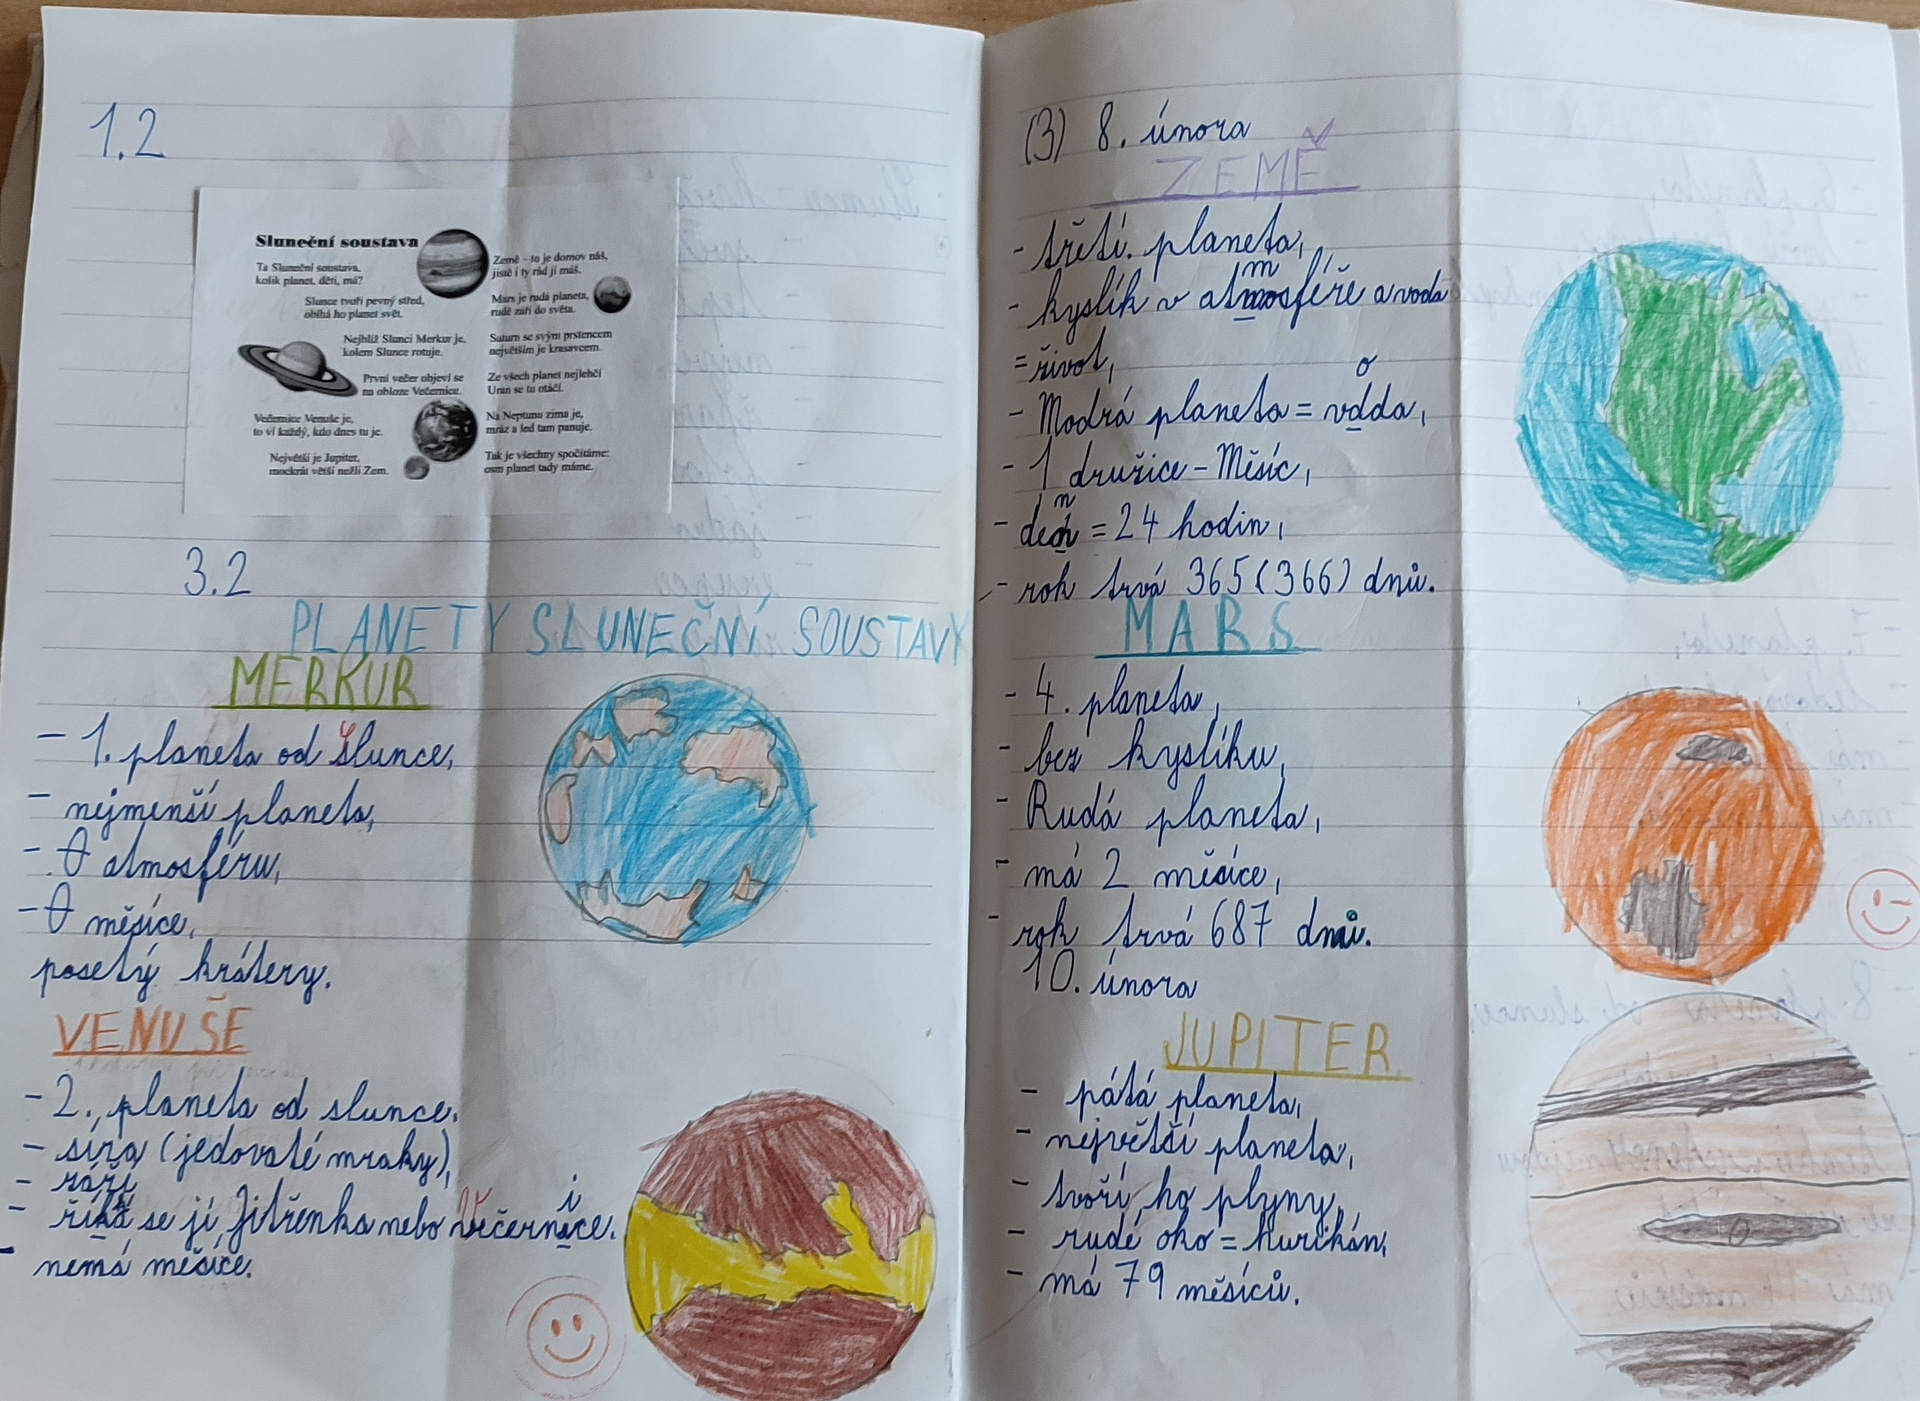 1.2
Sluneční soustava
Ta Sluneční soustava,
kolik planet, děti, má?
Slunce tvoří pevný střed,
obíhá ho planet svět.
Nejblíž Slunci Merkur je,
kolem Slunce rotuje.
První večer objeví se
na obloze Večernice.
Večernice Venuše je,
to ví každý, kdo dnes tu je.
Největší je Jupiter,
mockrát větší nežli Zem.
Země – to je domov náš,
jistě i ty rád ji máš.
Mars je rudá planeta,
rudě září do světa.
Saturn se svým prstencem
největším je krasavcem.
Ze všech planet nejlehčí
Uran se tu otáčí.
Na Neptunu zima je,
mráz a led tam panuje.
Tak je všechny spočítáme:
osm planet tady máme.
3.2
PLANETY SLUNEČNÍ SOUSTAVY
MERKUR
- 1. planeta od Slunce,
- nejmenší planeta,
- 0 atmosféru,
- 0 měsíce,
posetý krátery.
VENUŠE
- 2. planeta od slunce.
- síra (jedovaté mraky),
- září
- říká se jí Jitřenka nebo Večernice.
- nemá měsíce.
(3) 8. února
ZEMĚ
- třetí. planeta,
- kyslík v atmosféře a voda
= život,
- Modrá planeta = voda,
- 1 družice - Měsíc,
- den = 24 hodin,
- rok trvá 365 (366) dnů.
MARS
- 4. planeta,
- bez kyslíku,
- Rudá planeta,
- má 2 měsíce,
- rok trvá 687 dnů.
10. února
JUPITER
- pátá planeta,
- největší planeta,
- tvoří ho plyny,
- rudé oko = hurikán,
- má 79 měsíců.